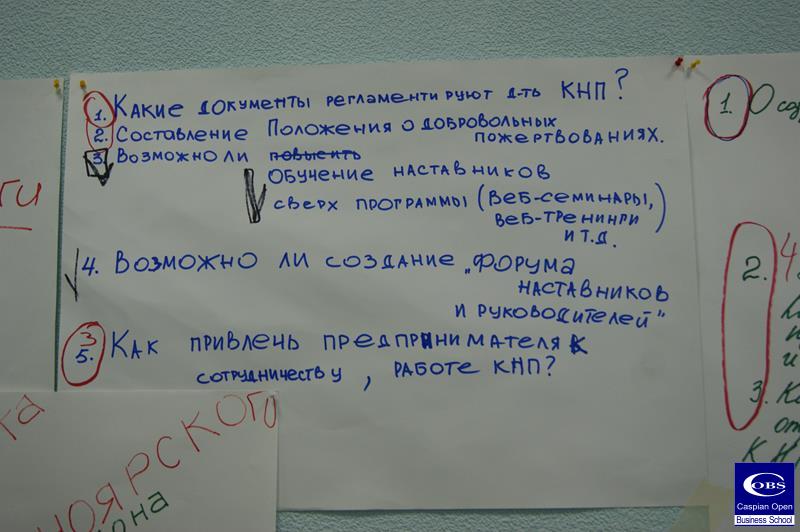 1. Какие документы регламентируют д-ть КНП?
2. Составление Положения о добровольных
пожертвованиях.
3. Возможно ли повысить
обучение наставников
сверх программы (веб-семинары,
веб-тренинги
и т.д.
4. Возможно ли создание „Форума
наставников
и руководителей"
3
5. Как привлечь предпринимателя к
сотрудничеству, работе КНП?
ти
ка
ноярского
она
1. О созр
2.
и
3. К
от
КН
COBS
Caspian Open
Business School